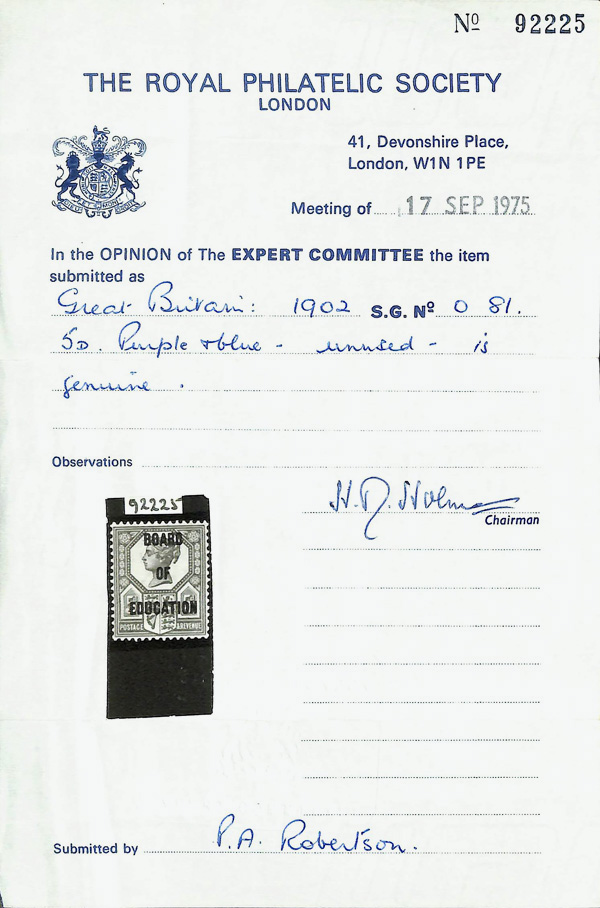 Nº 92225
THE ROYAL PHILATELIC SOCIETY
LONDON
41, Devonshire Place,
London, W1N 1PE
Meeting of 17 SEP 1975
In the OPINION of The EXPERT COMMITTEE the item
submitted as
Great Britain: 1902 S.G. Nº O 81.
5D. Purple & blue - unused - is
genuine.
Observations
H. D. Holmes
Chairman
92225
BOARD
OF
EDUCATION
POSTAGE & REVENUE
Submitted by P.A. Robertson.